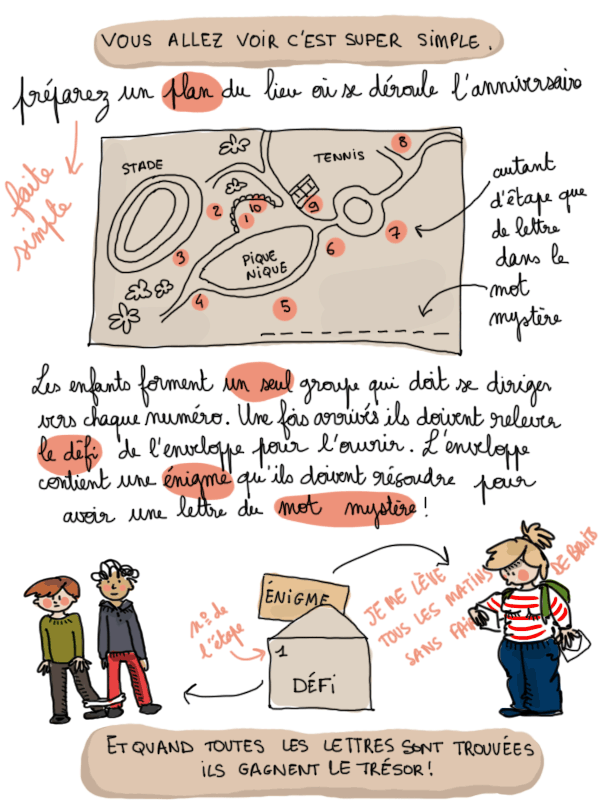 VOUS ALLEZ VOIR C'EST SUPER SIMPLE.
préparez un plan du lieu où se déroule l'anniversaire
faite
simple
STADE
TENNIS
PIQUE
NIQUE
1
2
3
4
5
6
7
8
9
10
autant
d'étape que
de lettre
dans le
mot
mystère
Les enfants forment un seul groupe qui doit se diriger
vers chaque numéro. Une fois arrivés ils doivent relever
le défi de l'enveloppe pour l'ouvrir. L'enveloppe
contient une énigme qu'ils doivent résoudre pour
avoir une lettre du mot mystère!
ÉNIGME
n° de
l'étape
1
DÉFI
JE ME LÈVE
TOUS LES MATINS
SANS FAI
DE BRUIT
ET QUAND TOUTES LES LETTRES SONT TROUVÉES
ILS GAGNENT LE TRÉSOR!